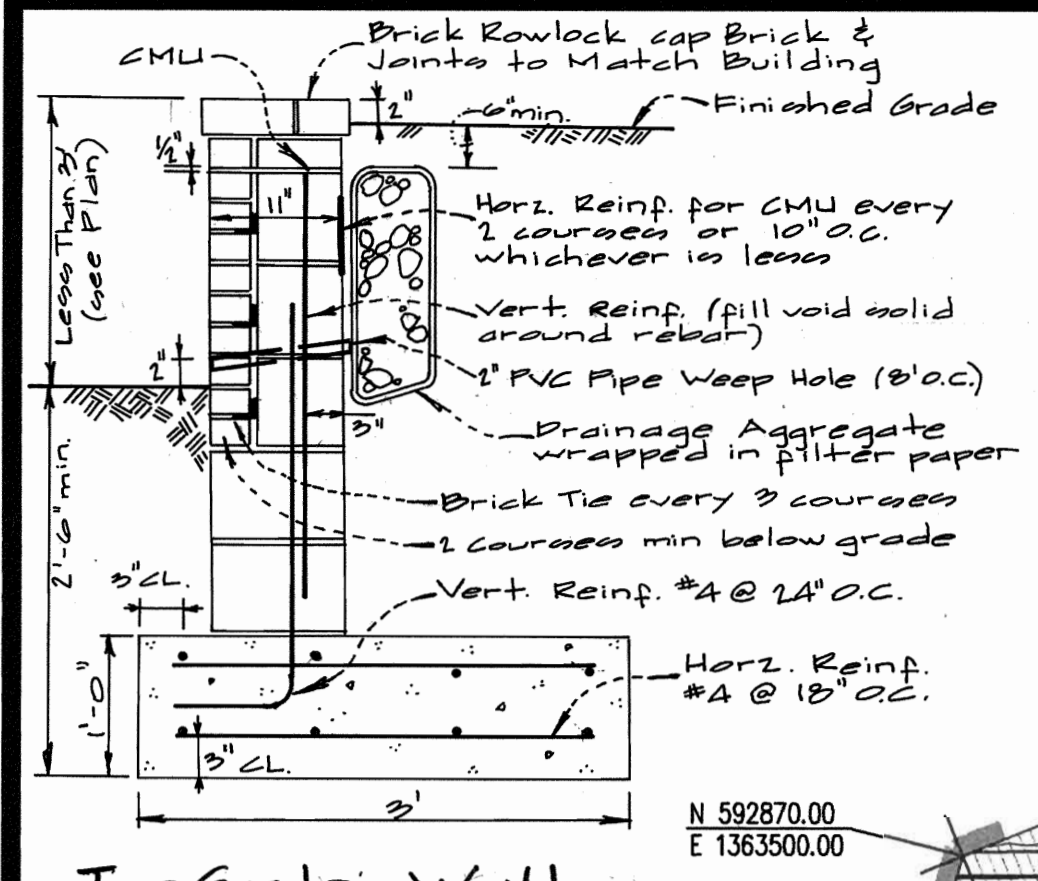 Brick Rowlock cap Brick &
Joints to Match Building
CMU
2"
6" min.
Finished Grade
1/2"
Less Than 3'
(see Plan)
11"
Horz. Reinf. for CMU every
2 courses or 10" O.C.
whichever is less
Vert. Reinf. (fill void solid
around rebar)
2"
2" PVC Pipe Weep Hole (8' O.C.)
3"
Drainage Aggregate
wrapped in filter paper
Brick Tie every 3 courses
2 courses min below grade
2'-6" min.
3" CL.
Vert. Reinf. #4 @ 24" O.C.
Horz. Reinf.
#4 @ 18" O.C.
1'-0"
3" CL.
3'
N 592870.00
E 1363500.00
Wall